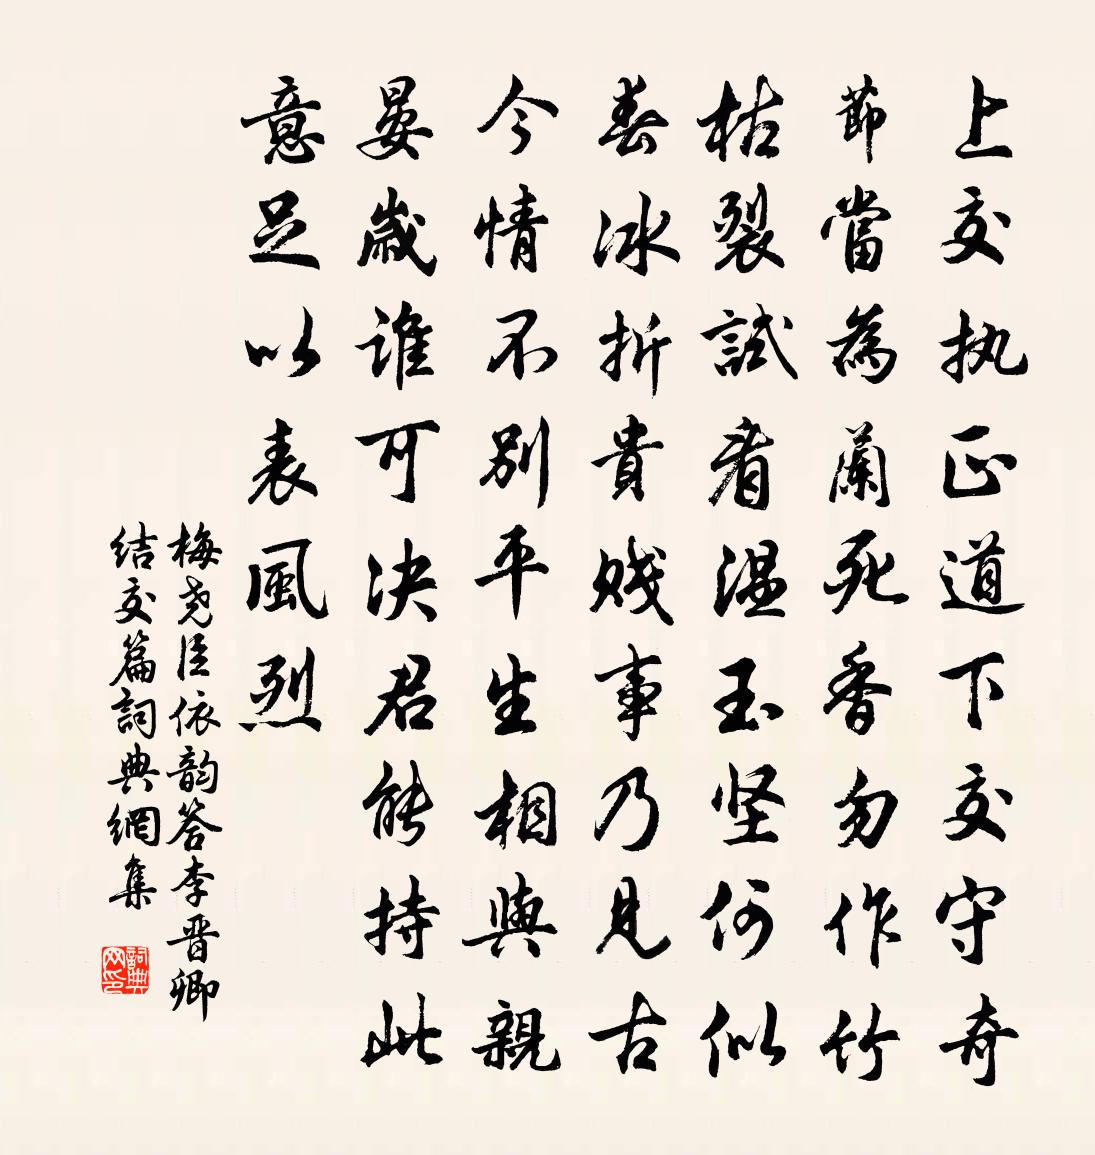 上交执正道下交守奇
節當為蘭死香勿作竹
枯裂試看温玉坚何似
春冰折貴贱事乃見古
今情不别平生相與親
晏歲谁可决君能持此
意足以表風烈
梅尧臣依韵答李晋卿
结交篇詞典網集
詞典网印